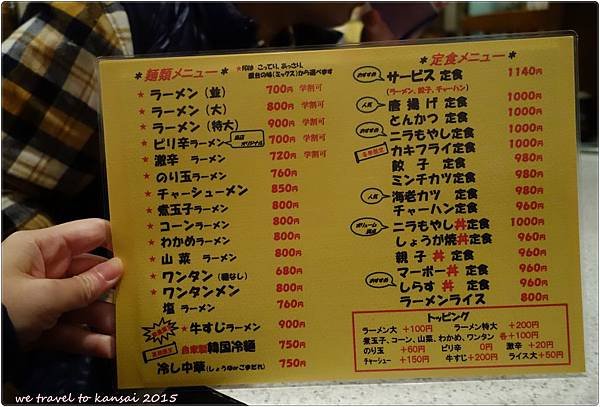 * 麺類メニュー *
★印は こってり、あっさり、
屋台の味(ミックス)から選べます
★ ラーメン (並) 700円 学割可
★ ラーメン (大) 800円 学割可
★ ラーメン (特大) 900円 学割可
★ ピリ辛ラーメン 当店オリジナル 700円 学割可
★ 激辛 ラーメン 720円 学割可
★ のり玉ラーメン 760円
★ チャーシューメン 850円
★ 煮玉子ラーメン 800円
★ コーンラーメン 800円
★ わかめラーメン 800円
★ 山菜 ラーメン 800円
★ ワンタン (麺なし) 680円
★ ワンタンメン 800円
塩 ラーメン 760円
★ 牛すじラーメン 900円
自家製韓国冷麺 750円
冷し中華(しょうゆorごまだれ) 750円
* 定食メニュー *
おすすめ サービス 定食 1140円
(ラーメン、餃子、チャーハン)
人気 唐揚げ 定食 1000円
とんかつ 定食 1000円
おすすめ ニラもやし定食 1000円
カキフライ定食 1000円
餃子 定食 980円
ミンチカツ定食 980円
人気 海老カツ 定食 980円
チャーハン定食 960円
ボリューム満点 ニラもやし丼定食 1000円
しょうが焼丼定食 960円
親子丼 定食 960円
マーボー丼 定食 960円
おすすめ しらす 丼 定食 960円
ラーメンライス 800円
トッピング
ラーメン大 +100円 ラーメン特大 +200円
煮玉子、コーン、山菜、わかめ、ワンタン 各+100円
のり玉 +60円 ピリ辛 0円 激辛 +20円
チャーシュー +150円 牛すじ+200円 ライス大+50円
we travel to kansai 2015